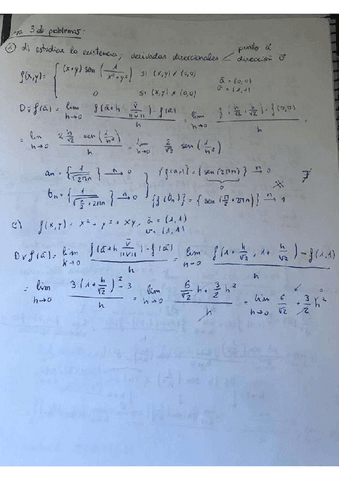 3 de problemas:
d) estudiar la existencia, derivadas direccionales punto ā
dirección v̄
f(x,y) = { (x+y) sen(1/(x²+y²)) si (x,y) ≠ (0,0)
0 si (x,y) = (0,0)
ā = (0,0)
v̄ = (1,1)
D v̄ f(ā) = lim h→0 (f(ā + h v̄/||v̄||) - f(ā))/h = lim h→0 (f(h/√2, h/√2) - f(0,0))/h
= lim h→0 (2 h/√2 sen(1/h²))/h = lim h→0 2/√2 sen(1/h²)
an = {1/√(2πn)} → 0
bn = {1/√(π/2 + 2πn)} → 0
{f(an)} = {sen(2πn)} → 0
{f(bn)} = {sen(π/2 + 2πn)} → 1
∄
c) f(x,y) = x² - y² + xy, ā = (1,1)
v = (1,1)
D v f(ā) = lim h→0 (f(ā + h v̄/||v̄||) - f(ā))/h = lim h→0 (f(1 + h/√2, 1 + h/√2) - f(1,1))/h
= lim h→0 (3·(1 + h/√2)² - 3)/h = lim h→0 (6/√2 h + 3/2 h²)/h = lim h→0 6/√2 + 3/2 h